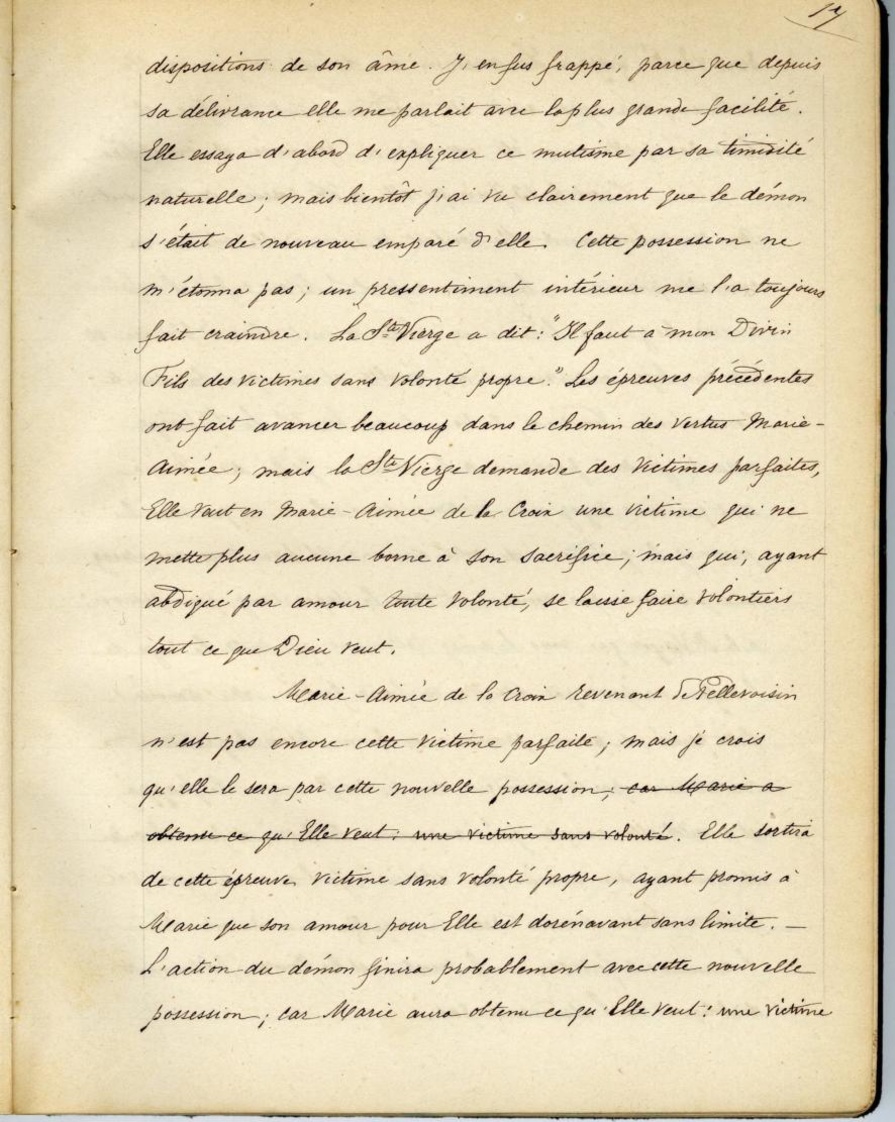 17
dispositions de son âme. J'en fus frappé, parce que depuis
sa délivrance elle me parlait avec la plus grande facilité.
Elle essaya d'abord d'expliquer ce mutisme par sa timidité
naturelle; mais bientôt j'ai vu clairement que le démon
s'était de nouveau emparé d'elle. Cette possession ne
m'étonna pas; un pressentiment intérieur me l'a toujours
fait craindre. La Ste Vierge a dit: "Il faut à mon Divin
Fils des victimes sans volonté propre." Les épreuves précédentes
ont fait avancer beaucoup dans le chemin des vertus Marie-
Aimée; mais la Ste Vierge demande des victimes parfaites,
Elle veut en Marie-Aimée de la Croix une victime qui ne
mette plus aucune borne à son sacrifice; mais qui, ayant
abdiqué par amour toute volonté, se laisse faire volontiers
tout ce que Dieu veut.
Marie-Aimée de la Croix revenant de Pellevoisin
n'est pas encore cette victime parfaite; mais je crois
qu'elle le sera par cette nouvelle possession; car Marie a
obtenu ce qu'Elle veut: une victime sans volonté. Elle sortira
de cette épreuve victime sans volonté propre, ayant promis à
Marie que son amour pour Elle est dorénavant sans limite. —
L'action du démon finira probablement avec cette nouvelle
possession; car Marie aura obtenu ce qu'Elle veut: une victime